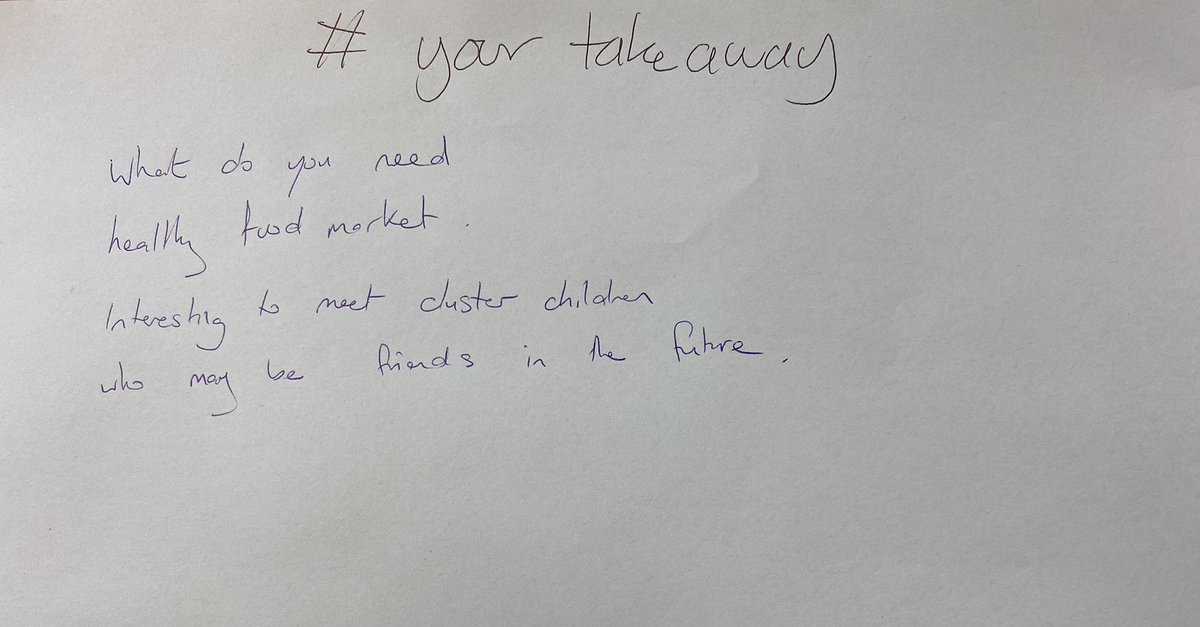 # your takeaway
What do you need
healthy food market.
Interesting to meet cluster children
who may be friends in the future.